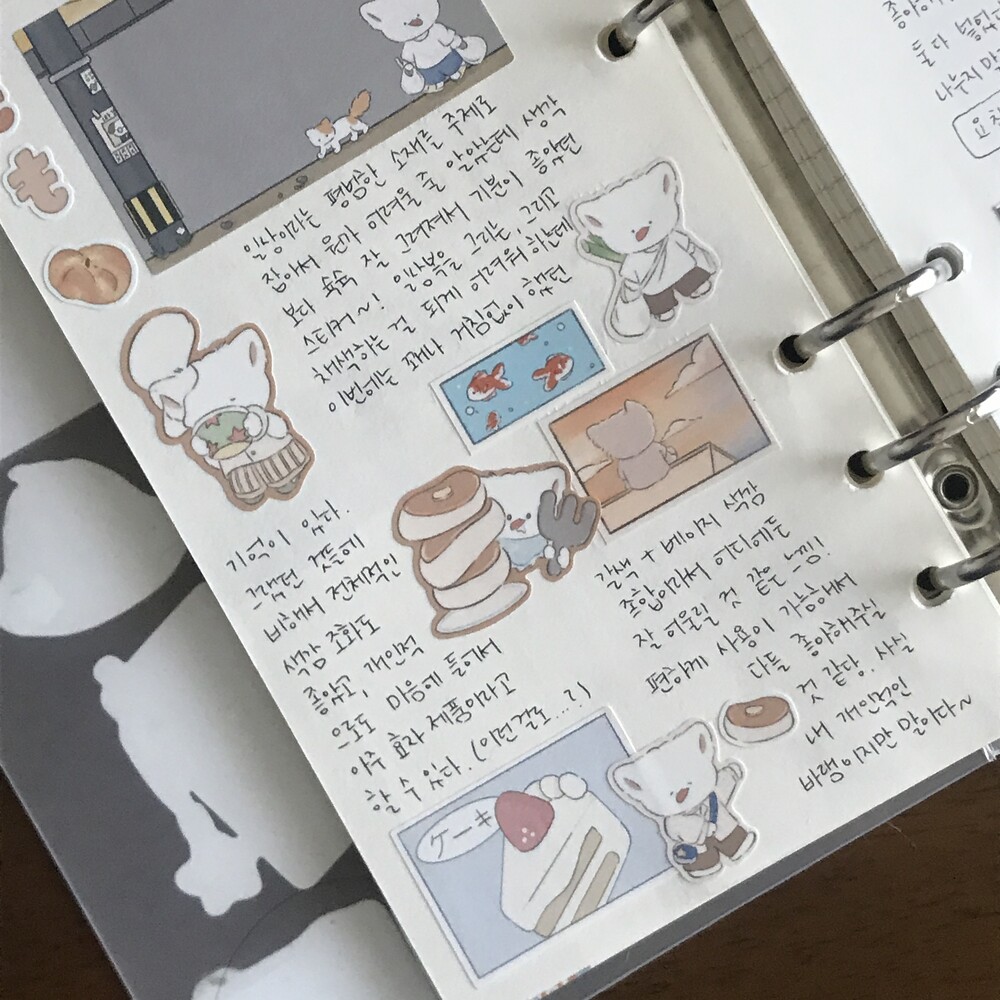 일상이라는 평범한 소재를 주제로
잡아서 뭔가 어려울 줄 알았는데 생각
보다 슥슥 잘 그려져서 기분이 좋았던
스티커~! 일상복을 그리는, 그리고
채색하는 걸 되게 어려워 하는데
이번에는 꽤나 거침없이 했던
기억이 있다.
그랬던 것들에
비해서 전체적인
색감 조화도
좋았고, 개인적
으로도 마음에 들어서
아주 효자 제품이라고
할 수 있다. (이런걸로...?)
갈색 + 베이지 색감
조합이라서 어디에든
잘 어울릴 것 같은 느낌!
편하게 사용이 가능해서
다들 좋아해주실
것 같다. 사실
내 개인적인
바램이지만 말이다~
ケーキ
둘다
나누지